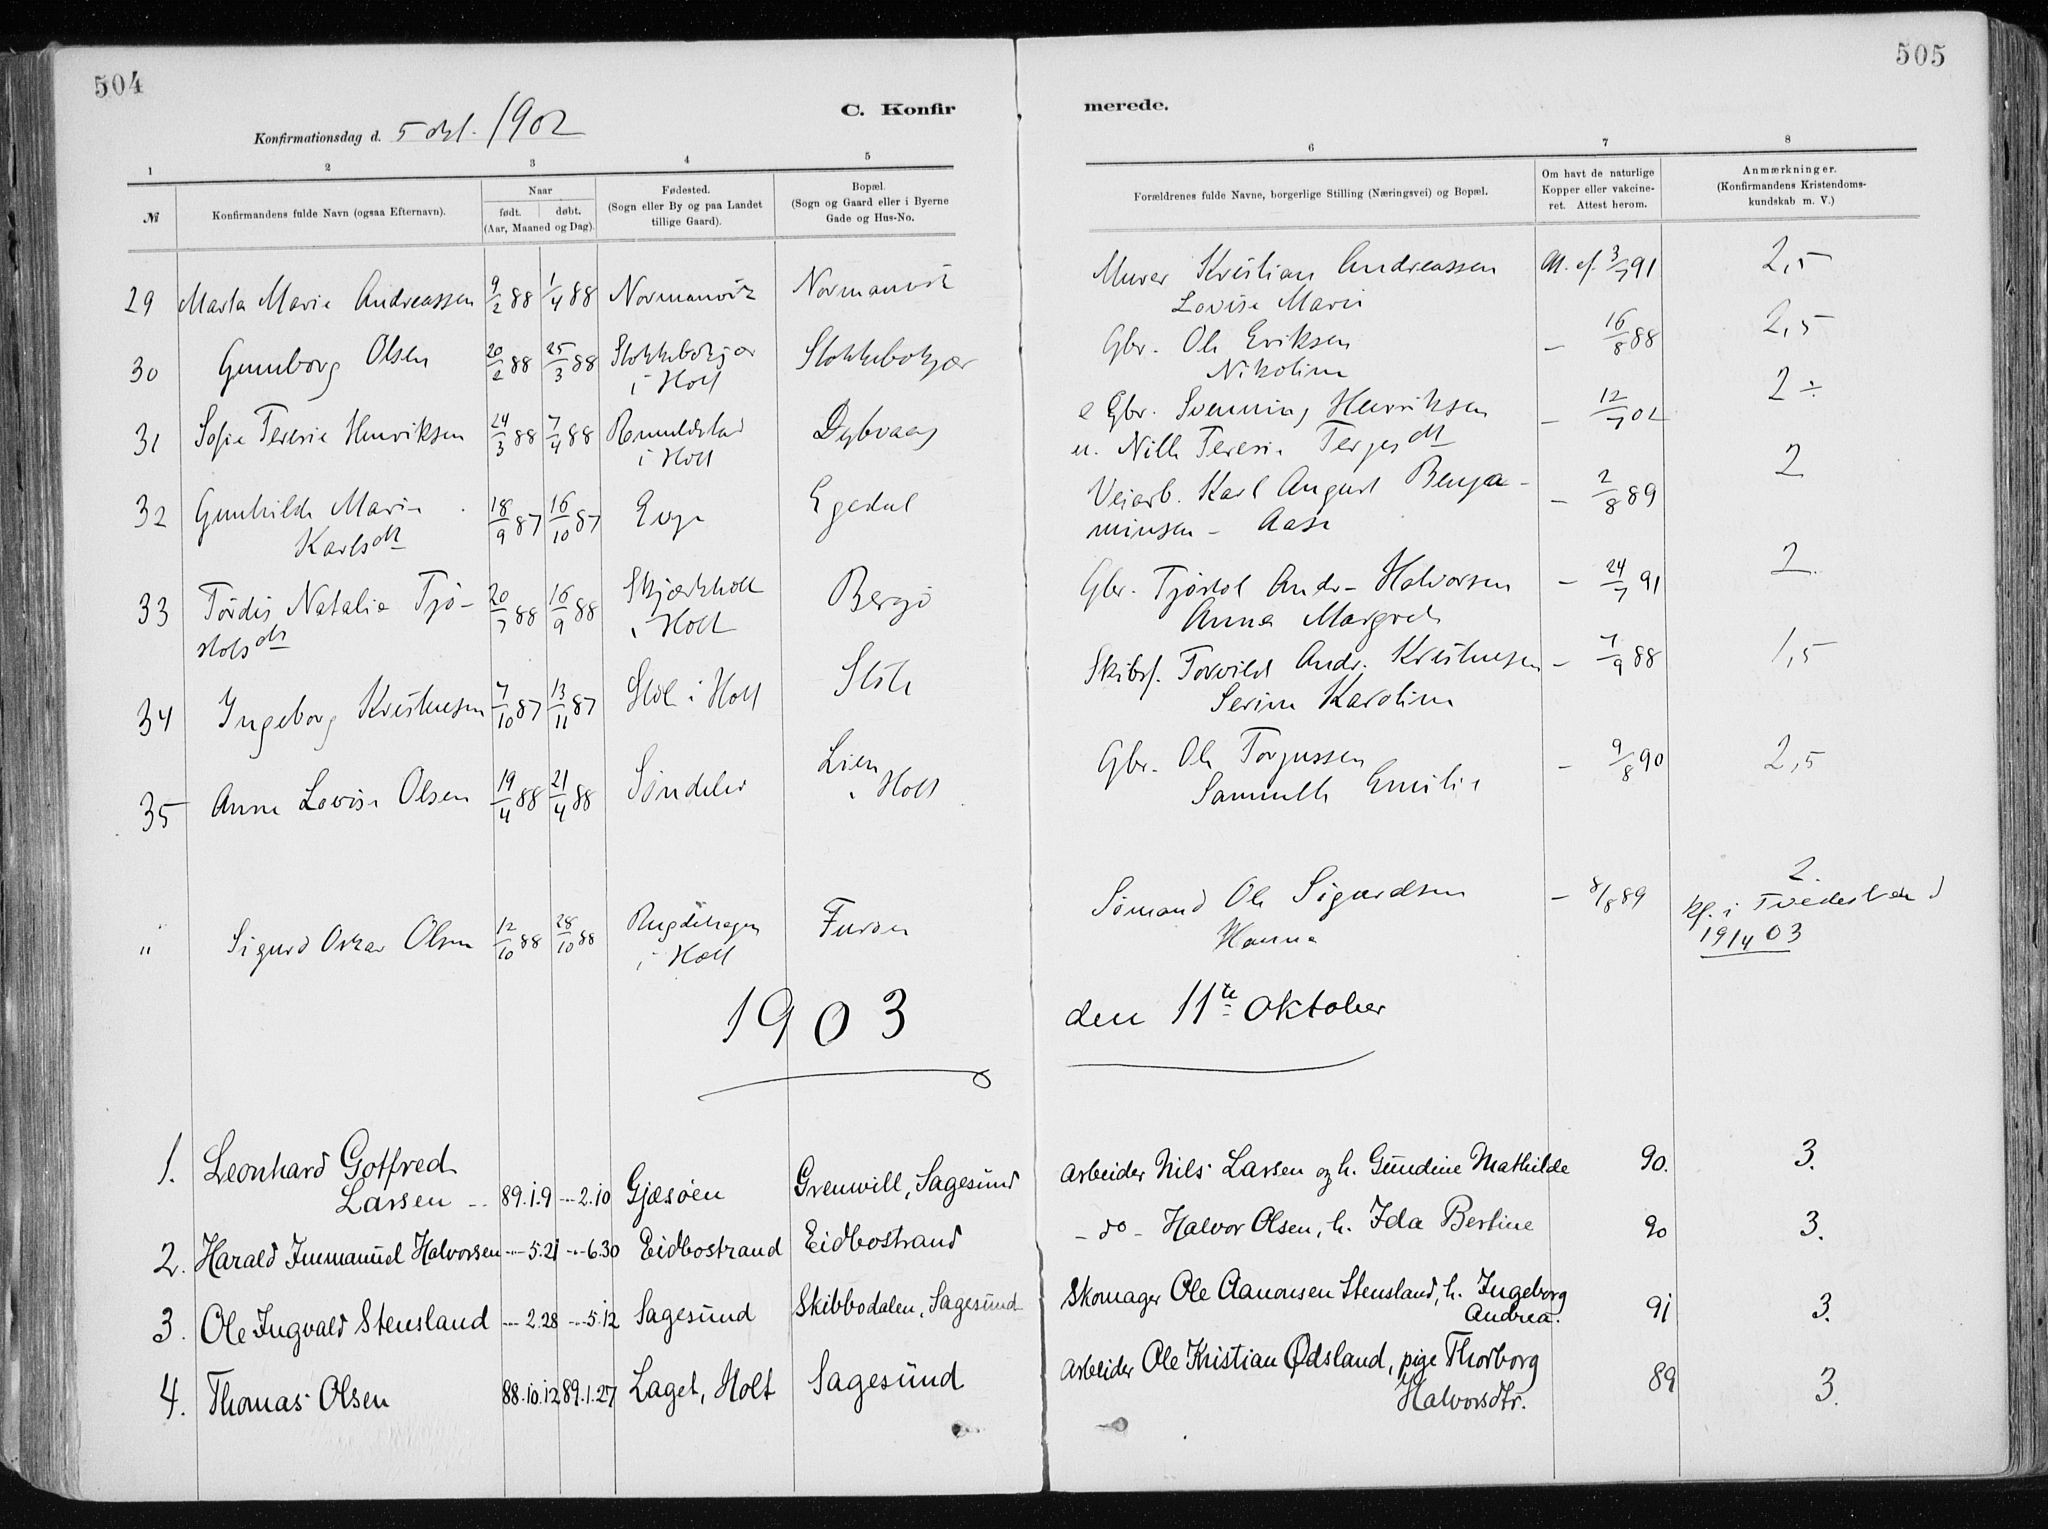 504
505
C. Konfirmerede.
Konfirmationsdag d. 5 okt. 1902
1 2 3 4 5 6 7 8
№ Konfirmandens fulde Navn (ogsaa Efternavn). Naar født. døbt. (Aar, Maaned og Dag). Fødested. (Sogn eller By og paa Landet tillige Gaard). Bopæl. (Sogn og Gaard eller i Byerne Gade og Hus-No. Forældrenes fulde Navne, borgerlige Stilling (Næringsvei) og Bopæl. Om havt de naturlige Kopper eller vakcineret. Attest herom. Anmærkninger. (Konfirmandens Kristendomskundskab m. V.)
29 Marta Marie Andreassen 9/2 88 1/4 88 Normanvik Normanvik Murer Kristian Andreassen 3/7 91 2,5
Lovise Marie
30 Gunborg Olsen 20/2 88 25/3 88 Stokkebokjær Stokkebokjær Gbr. Ole Eriksen – 16/8 88 2,5
i Holt Nikoline
31 Sofie Teresie Henriksen 24/3 88 7/4 88 Romundstad Dybvaag e Gbr. Svenning Henriksen – 12/7 02 2 ÷
i Holt u. Nille Teresie Terjesdtt
32 Gunhilde Marie 18/9 87 16/10 87 Evje Egedal Veiarb. Karl August Benja- – 2/8 89 2
Karlsdtt minsen – Aase
33 Tordis Natalie Tjø- 20/7 88 16/9 88 Skjærkholt Bergø Gbr. Tjøstol Andr. Halvorsen – 24/7 91 2
stolsdtt i Holt Anna Margrete
34 Ingeborg Kristensen 7/10 87 13/11 87 Støl i Holt Støle Skibsf. Torvild Andr. Kristensen – 7/9 88 1,5
Serine Karoline
35 Anna Lovise Olsen 19/4 88 21/4 88 Søndeled Lien Gbr. Ole Torjussen – 9/8 90 2,5
i Holt Samuelle Emilie
" Sigurd Oskar Olsen 12/10 88 28/10 88 Rugdehagen Furøen Sømand Ole Sigurdsen – 8/8 89 2.
i Holt Hanna kf. i Tvedestrand
19/4 03
1903 den 11te Oktober
1. Leonhard Gotfred
Larsen -- 89.1.9 --- 2.10 Gjæsøen Grenwill, Sagesund Arbeider Nils Larsen og h. Gundine Mathilde 90. 3.
2. Harald Immanuel Halvorsen --- 5.21 --- 6.30 Eidbostrand Eidbostrand – do – Halvor Olsen, h. Ida Bertine 90 3.
3. Ole Ingvald Stensland --- 2.28 --- 5.12 Sagesund Skibbodalen, Sagesund Skomager Ole Aanonsen Stensland, h. Ingeborg
Andrea. 91 3.
4. Thomas Olsen 88.10.12 89.1.27 Laget, Holt Sagesund Arbeider Ole Kristian Ødsland, pige Thorborg
Halvorsdtr. 89 3.